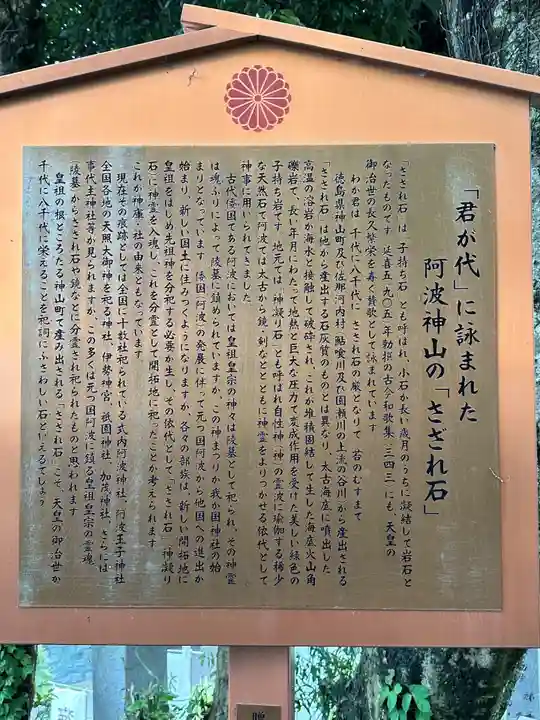 「君が代」に詠まれた
阿波神山の「さざれ石」
「さざれ石」は「子持ち石」とも呼ばれ、小石が長い歳月のうちに凝結して岩石と
なったものです 延喜五(九〇五)年勅撰の古今和歌集(三四三)にも、天皇の
御治世の長久繁栄を寿く賛歌として詠まれています
わか君は 千代に八千代に さざれ石の巌となりて 苔のむすまて
徳島県神山町及び佐那河内村(鮎喰川及び園瀬川の上流の谷川)から産出される
「さざれ石」は他から産出する石灰質のものとは異なり、太古海底に噴出した
高温の溶岩が海水と接触して破砕され、これが堆積固結して生した海底火山角
礫岩で、長い年月にわたって地熱と巨大な圧力で変成作用を受けた美しい緑色の
子持ち岩です 地元では「神凝り石」とも呼ばれ自性神(神)の霊波に瑜伽する稀少
な天然石で阿波では太古から鏡、剣などとともに神霊をよりつかせる依代として
神事に用いられてきました
古代倭国である阿波においては皇祖皇宗の神々は陵墓として祀られ、その神霊
は魂ふりによって陵墓に鎮められていますが、この神まつりが我か国神社の始
まりとなっています 倭国(阿波)の発展に伴って元つ国阿波から他国への進出か
始まり、新しい国土に住みつくようになりますが、各々の部族は、新しい開拓地に
皇祖をはじめ先祖神を分祀する必要か生し、その依代として「さざれ石」(神凝り
石)に神霊を入魂し、これを分霊として開拓地に祀ったことか考えられます
これか神庫、社の由来ともなっています
現在その痕跡としては全国に十数社祀られている式内阿波神社、阿波王子神社
全国各地の天照大御神を祀る神社、伊勢神宮、祇園神社、加茂神社、さらには
事代主神社等か見られますか、この多くは元つ国阿波に鎮る皇祖皇宗の霊魂
(陵墓)からさざれ石や鏡などに分霊され祀られたものと思われます
皇祖の根ところたる神山町て産み出される「さざれ石」こそ、天皇の御治世か
千代に八千代に栄えることを祀詞にふさわしい石といえるてしょう